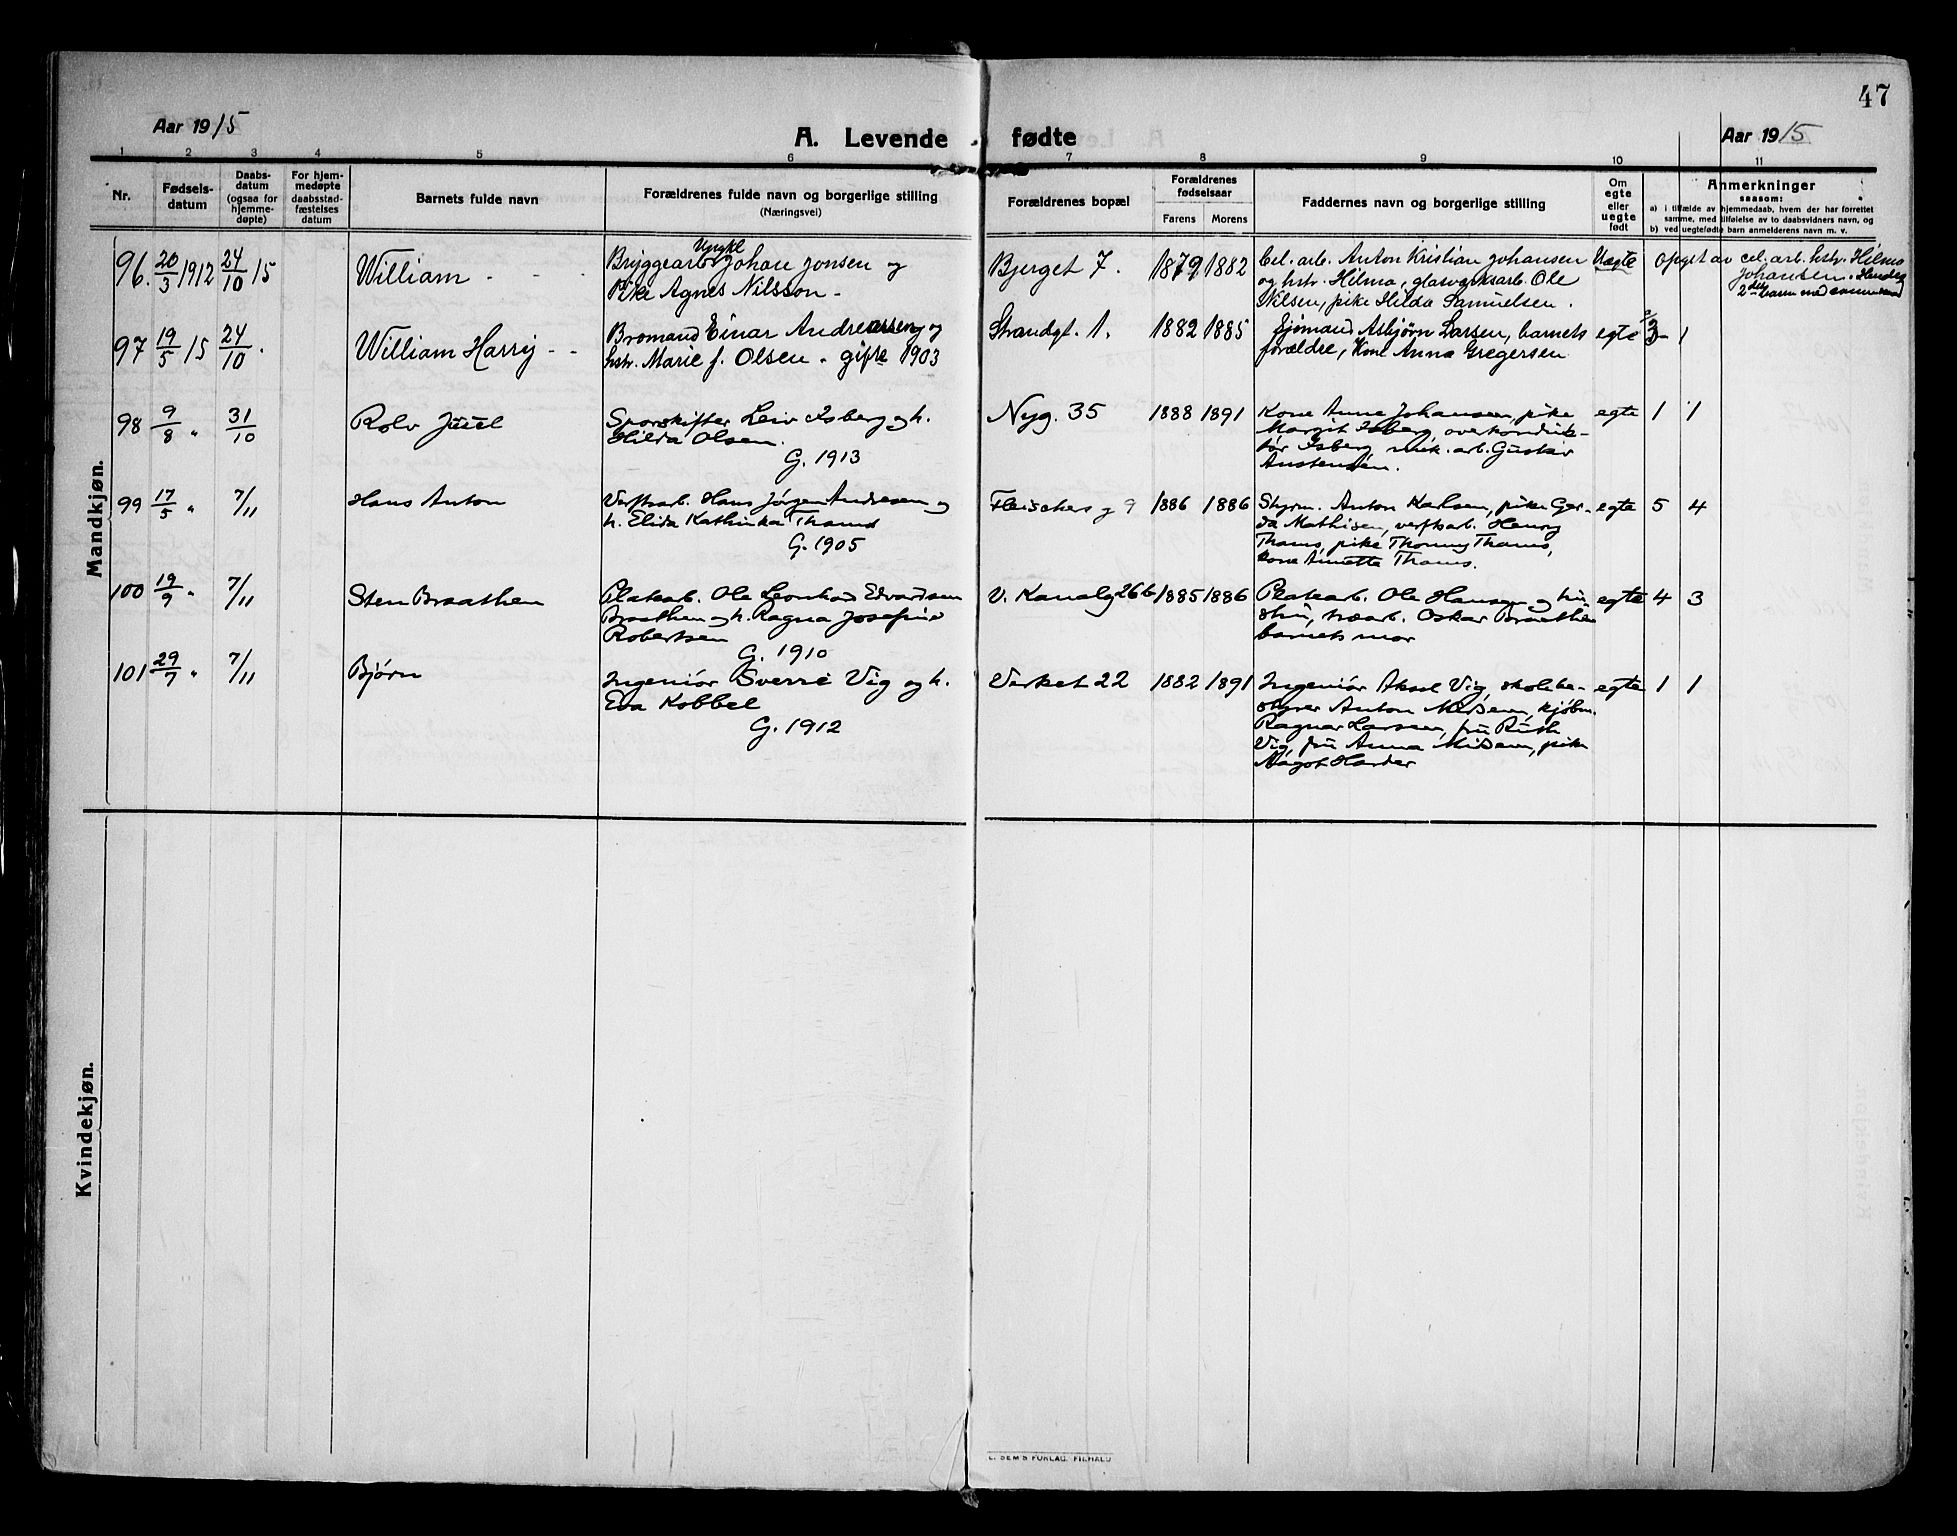 47
Aar 1915
A. Levende fødte
Aar 1915
1 2 3 4 5 6 7 8 9 10 11
Nr.
Fødsels-
datum
Daabs-
datum
(ogsaa for
hjemme-
døpte)
For hjem-
medøpte
daabsstad-
fæstelses
datum
Barnets fulde navn
Forældrenes fulde navn og borgerlige stilling
(Næringsvei)
Forældrenes bopæl
Forældrenes
fødselsaar
Farens Morens
Faddernes navn og borgerlige stilling
Om
egte
eller
uegte
født
Anmerkninger
saasom:
a) i tilfælde av hjemmedaab, hvem der har forrettet
samme, med tilføielse av to daabsvidners navn, og
b) ved uegtefødte barn anmelderens navn m. v.
Mandkjøn.
96. 20/3 1912 24/10 15
William
Ungkl
Bryggearb Johan Jonsen og
Pike Agnes Nilsson
Bjerget 7.
1879 1882
Cel. arb. Anton Kristian Johansen
og hstr. Hilma, glasverksarb. Ole
Nilsen, pike Hilda Samuelsen.
Uegte
Opget av cel. arb. hstr. Hilma
Johansen.
2det barn med samme mand
97 19/5 15 24/10.
William Harry
Bromand Einar Andreassen og
hstr. Marie f. Olsen. gifte 1903
Strandgt. 1.
1882 1885
Sjømand Asbjørn Larsen, barnets
forældre, Kone Anna Gregersen
egte 3 1
98 9/8 " 31/10
Rolv Juul
Sporskifter Leiv Isberg og h.
Hilda Olsen.
G. 1913
Nyg. 35
1888 1891
Kone Anne Johansen, pike
Margit Isberg, overkonduk-
tør Isberg, mek. arb. Gustav
Anstensen.
egte 1 1
99 17/5 " 7/11
Hans Anton
Verftsarb. Hans Jørgen Andresen og
h. Elida Kathinka Thams
G. 1905
Fleischers g 9
1886 1886
Styrm. Anton Karlsen, pike Ger-
da Mathisen, verftsarb. Henry
Thams, pike Thonny Thams,
kone Annette Thams.
egte 5 4
100 19/9 " 7/11
Sten Braathen
Platearb. Ole Leonhard Edvardsen
Braathen og h. Ragna Josefine
Robertsen
G. 1910
V. Kanalg 26b
1885 1886
Platearb. Ole Hansen og hu-
stru, træarb. Oskar Braathen
barnets mor
egte 4 3
101 29/7 " 7/11
Bjørn
Ingeniør Sverre Vig og h.
Eva Kobbel
G. 1912
Verket 22
1882 1891
Ingeniør Aksel Vig, skolebe-
styrer Anton Midsem, kjøbm.
Ragnar Larsen, fru Ruth
Vig, fru Anna Midsem, pike
Aagot Harder
egte 1 1
Kvindekjøn.
E. SEM'S FORLAG, FR.HALD